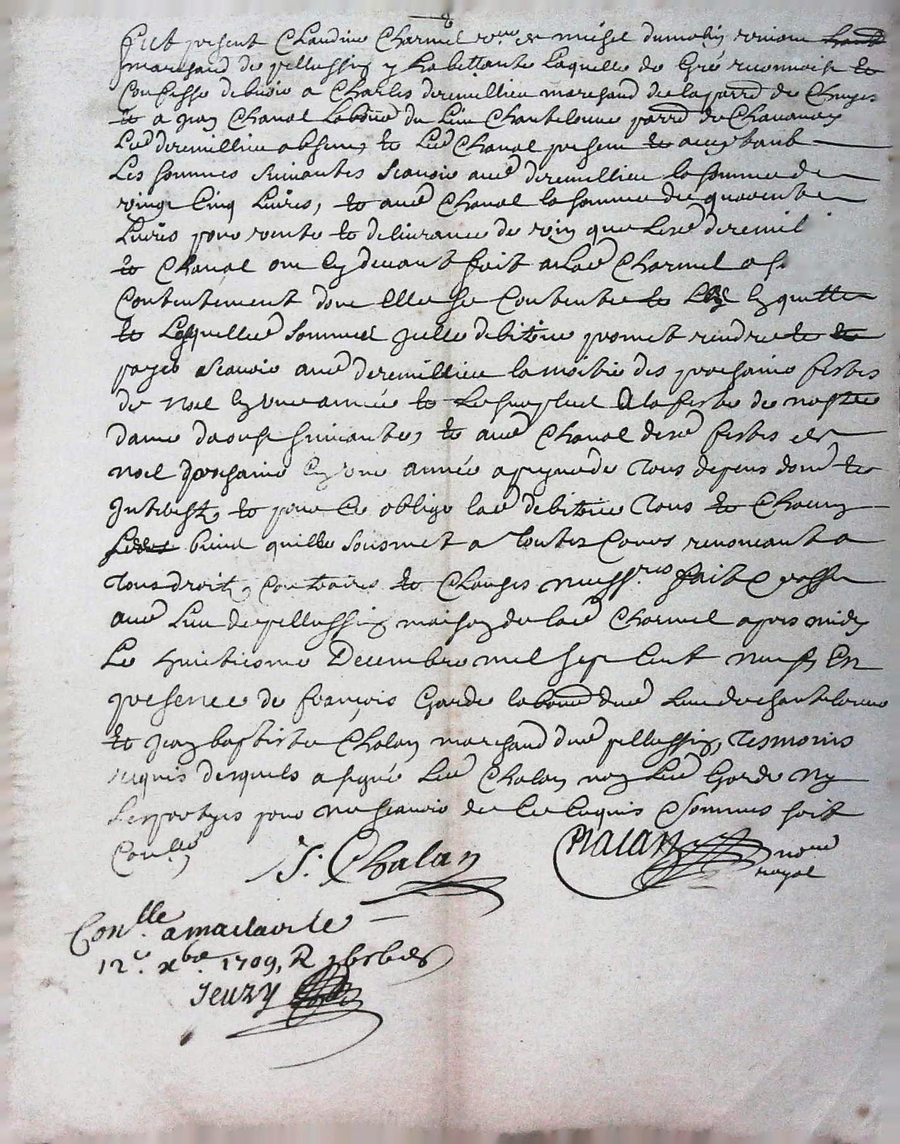 fut present Claudine Charmel
marchand de pellussin y habittante laquelle de gré reconnoist et
confesse debvoir a Charles deremillieu marchand de la parr.e de Chuyes
et a jean Chanal lab du lieu Chantelouue parr.e de Chauanay
led deremillieu absent, et led Chanal present et acceptant
les sommes suiuantes scauoir aud deremillieu la somme de
vingt cinq liures, et aud Chanal la somme de quarente
liures pour vente et deliurance de vin que led deremil
et Chanal ont cy deuant fait a lad Charmel a s.
contentement dont elle se contente et les quitte
et lesquelles sommes jcelle debitrice promet rendre et
payer scauoir aud deremillieu la moitié des prochaine festes
de noel en une année et le surplus a la feste de nostre
dame daoust suiuante, et aud Chanal festes de
noel prochaine en une année a peyne de tous depens dom et
jnterest, et pour ce oblige lad debitrice tous et chacun
biens quelle soubmet a toutes cours renoncant a
tous droit, contraires et clauses fait et passé
aud lieu de pellussin maison de lad Charmel apres midy
le huictiesme Decembre mil sept cent neuf, en
presence de françois Garde lab dud lieu de chantelouue
et jean baptiste Chalan marchand dud pellussin, tesmoins
requis desquels a signé led Chalan non led Garde ny
les partyes pour ne scauoir de ce enquis et sommés soit
con.lé
J. Chalan
Chalan no.re
royal
Con.lle a maclas le
12.e xbre 1709, R
Jeuzy